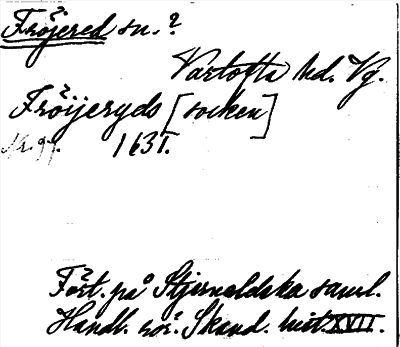 Fröjered sn.?
Vartofta hd. Vg.
Fröijeryds [socken]
Nr. 97. 1631.
Fört. på Stjerneldska saml.
Handl. rör. Skand. hist. XVII.